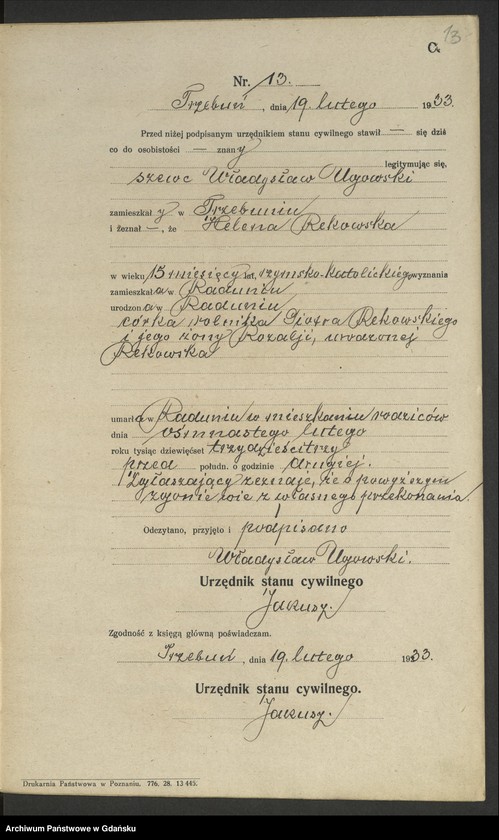 C.
13
Nr. 13.
Trzebuń, dnia 19. lutego 1933.
Przed niżej podpisanym urzędnikiem stanu cywilnego stawił — się dziś
co do osobistości — znany
legitymując się,
szewc Władysław Ugowski
zamieszkały w Trzebuniu
i żeznał —, że Helena Rekowska
w wieku 15 miesięcy lat, rzymsko-katolickiego wyznania
zamieszkała w Raduniu
urodzona w Raduniu
córka rolnika Piotra Rekowskiego
i jego żony Rozalji, urodzonej
Rekowska
umarła w Raduniu w mieszkaniu rodziców
dnia osmnastego lutego
roku tysiąc dziewięćset trzydzieścitrzy
przed połudn. o godzinie drugiej.
Zgłaszający zeznaje, że o powyższym
zgonie wie z własnego przekonania
Odczytano, przyjęto i podpisano
Władysław Ugowski.
Urzędnik stanu cywilnego
Jakusz.
Zgodność z księgą główną poświadczam.
Trzebuń, dnia 19. lutego 1933.
Urzędnik stanu cywilnego.
Jakusz.
Drukarnia Państwowa w Poznaniu. 776. 28. 13 445.
Archiwum Państwowe w Gdańsku